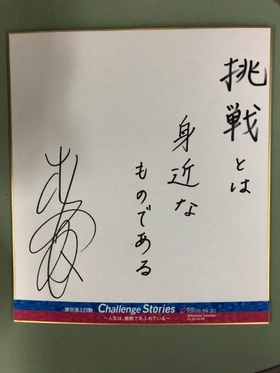 挑戦とは
身近な
ものである
東京海上日動 Challenge Stories
〜人生は、挑戦であふれている〜